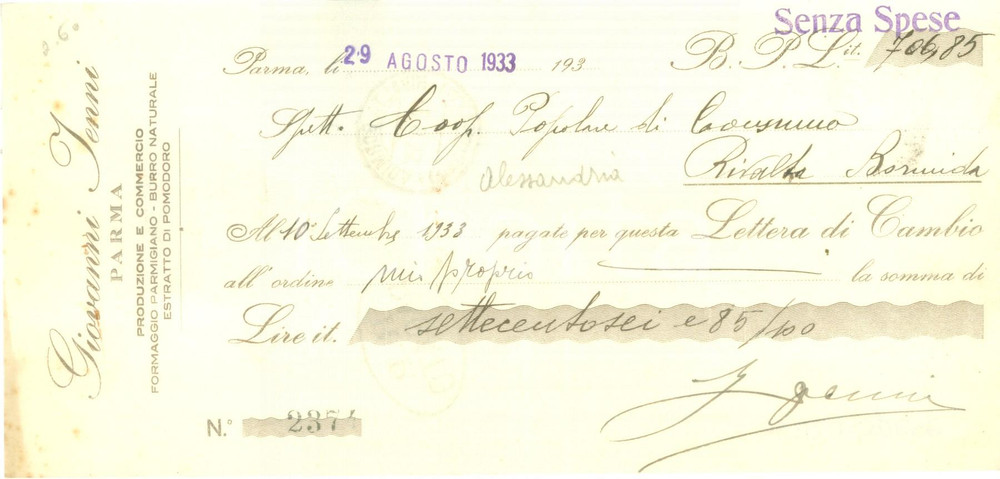 Senza Spese
Parma, li 29 AGOSTO 1933 193 B. P. L.it. 706,85
Spett. Coop. Popolare di Consumo
Rivalta Bormida
Alessandria
Al 10 Settembre 1933 pagate per questa Lettera di Cambio
all'ordine mio proprio la somma di
Lire it. settecentosei e 85/100
N.º 2371
Giovanni Jenni
PARMA
PRODUZIONE E COMMERCIO
FORMAGGIO PARMIGIANO - BURRO NATURALE
ESTRATTO DI POMODORO